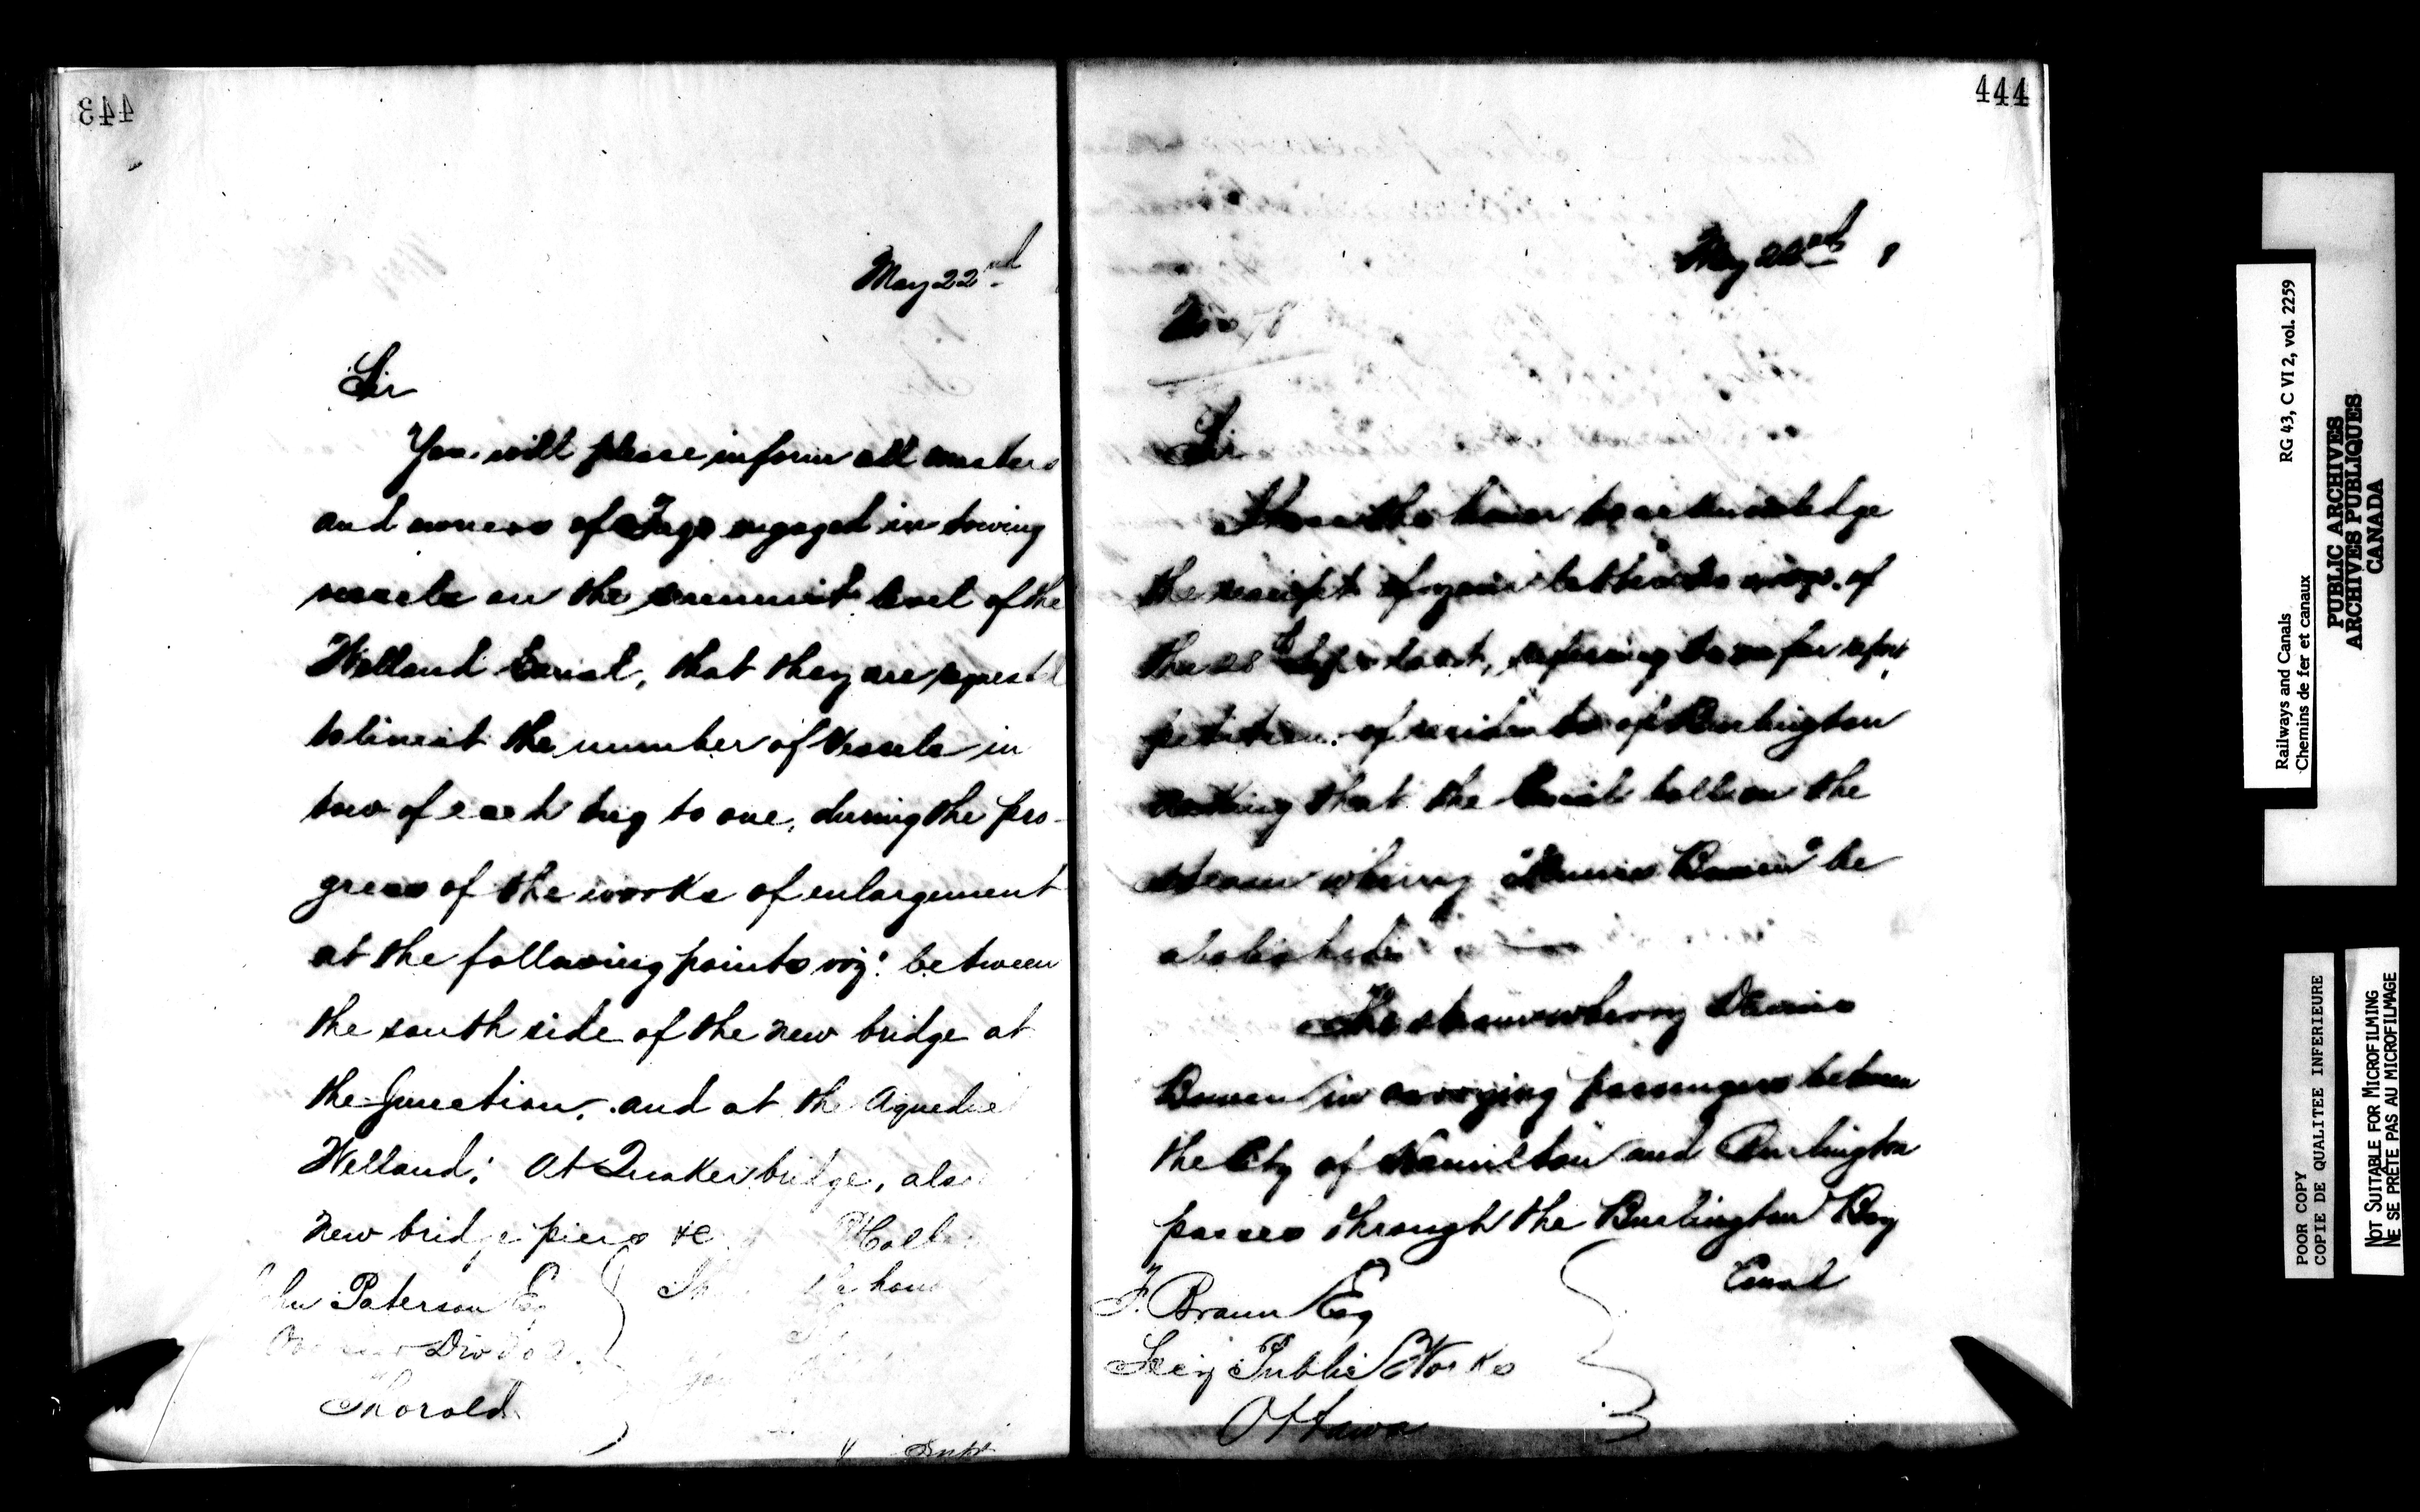 443
May 22nd
Sir
You will please inform all masters
and owners of Tugs engaged in towing
vessels on the summit level of the
Welland Canal, that they are requested
to limit the number of vessels in
tow of each tug to one, during the pro-
gress of the works of enlargement
at the following points viz: between
the south side of the new bridge at
the Junction, and at the Aqueduct
Welland; At Quaker bridge, also
new bridge piers &c
Paterson Esq
Thorold
444
May 22nd 8
Sir
I have the honor to acknowledge
the receipt of your letter of
the referring to me for report
petition of residents of Burlington
asking that the Canal toll on the
steam wherry "Dennis Bowen" be
abolished
The steam wherry Dennis
Bowen in carrying passengers between
the City of Hamilton and Burlington
passes through the Burlington Bay
Canal
F. Braun Esq
Secy Public Works
Ottawa
Railways and Canals RG 43, C VI 2, vol. 2259
Chemins de fer et canaux
PUBLIC ARCHIVES
ARCHIVES PUBLIQUES
CANADA
POOR COPY
COPIE DE QUALITEE INFERIEURE
NOT SUITABLE FOR MICROFILMING
NE SE PRÊTE PAS AU MICROFILMAGE